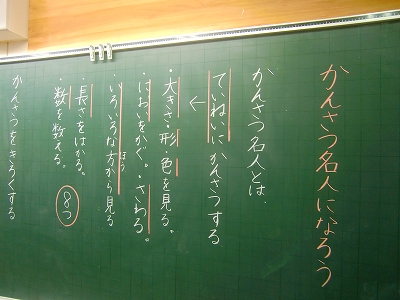 かんさつ名人になろう
かんさつ名人とは、
ていねいにかんさつする
↓
・大きさ形色を見る。
・においをかぐ。・さわる。
・いろいろな方から見る
ほう
・長さをはかる。
・数を数える。
8つ
かんさつをきろくする